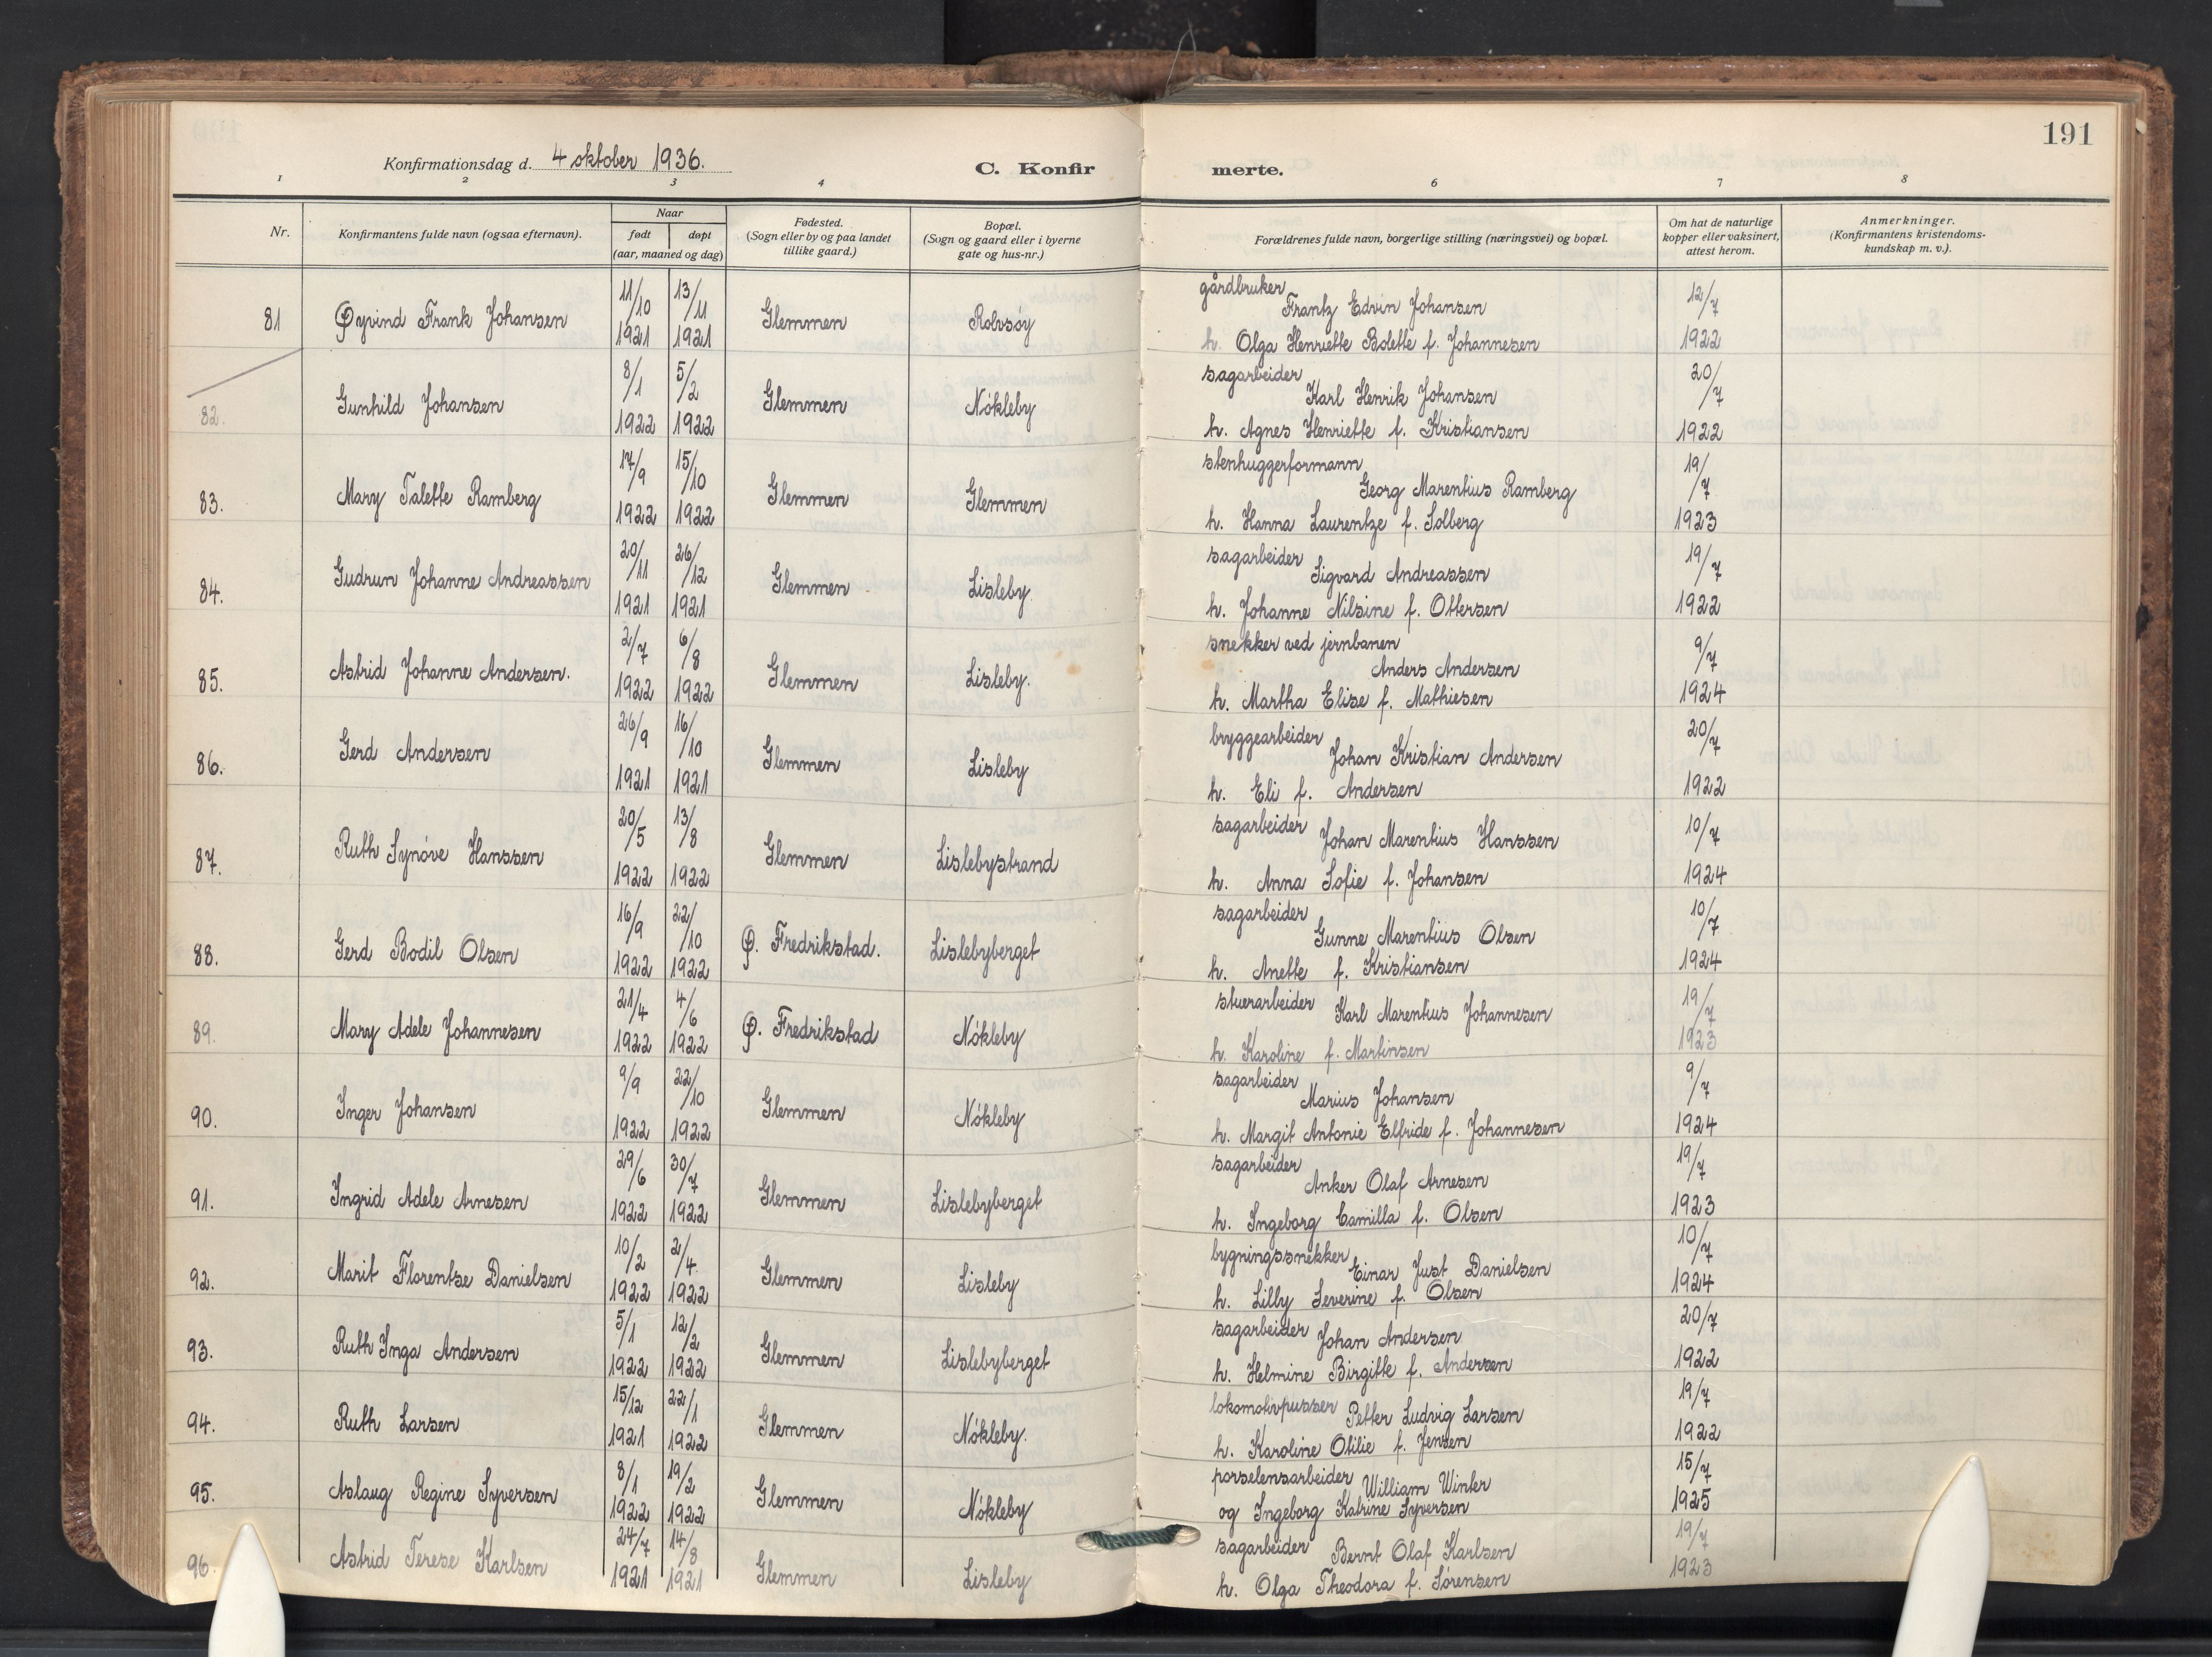 191
Konfirmationsdag d. 4 oktober 1936.
C. Konfirmerte.
1 2 3 4 5 6 7 8
Nr.
Konfirmantens fulde navn (ogsaa efternavn).
Naar
født døpt
(aar, maaned og dag)
Fødested.
(Sogn eller by og paa landet
tillike gaard.)
Bopæl.
(Sogn og gaard eller i byerne
gate og hus-nr.)
Forældrenes fulde navn, borgerlige stilling (næringsvei) og bopæl.
Om hat de naturlige
kopper eller vaksinert,
attest herom.
Anmerkninger.
(Konfirmantens kristendoms-
kundskap m. v.).
81 Øyvind Frank Johansen 11/10 1921 13/11 1921 Glemmen Rolvsøy
gårdbruker Frantz Edvin Johansen 12/7
h. Olga Henriette Bolette f. Johannesen 1922
82. Gunhild Johansen 8/1 1922 5/2 1922 Glemmen Nökleby
sagarbeider Karl Henrik Johansen 20/7
h. Agnes Henriette f. Kristiansen 1922
83. Mary Talette Ramberg 17/9 1922 15/10 1922 Glemmen Glemmen
stenhuggerformann Georg Marentius Ramberg 19/7
h. Hanna Laurentze f. Solberg 1923
84. Gudrun Johanne Andreassen 20/11 1921 26/12 1921 Glemmen Lisleby
sagarbeider Sigvard Andreassen 19/7
h. Johanne Nilsine f. Ottersen 1922
85. Astrid Johanne Andersen. 2/7 1922 6/8 1922 Glemmen Lisleby.
snekker ved jernbanen Anders Andersen 9/7
h. Martha Elise f. Mathiesen 1924
86. Gerd Andersen 26/9 1921 16/10 1921 Glemmen Lisleby
bryggearbeider Johan Kristian Andersen 20/7
h. Eli f. Andersen 1922
87. Ruth Synöve Hanssen 20/5 1922 13/8 1922 Glemmen Lislebystrand
sagarbeider Johan Marentius Hanssen 10/7
h. Anna Sofie f. Johansen 1924
88. Gerd Bodil Olsen 16/9 1922 22/10 1922 Ø. Fredrikstad. Lislebyberget
sagarbeider Gunne Marentius Olsen 10/7
h. Anette f. Kristiansen 1924
89. Mary Adele Johannesen 21/4 1922 4/6 1922 Ø. Fredrikstad Nökleby
stuerarbeider Karl Marentius Johannesen 19/7
h. Karoline f. Martinsen 1923
90. Inger Johansen 9/9 1922 22/10 1922 Glemmen Nökleby
sagarbeider Marius Johansen 9/7
h. Margit Antonie Elfride f. Johannesen 1924
91. Ingrid Adele Arnesen 29/6 1922 30/7 1922 Glemmen Lislebyberget
sagarbeider Anker Olaf Arnesen 19/7
h. Ingeborg Camilla f. Olsen 1923
92. Marit Florentse Danielsen 10/2 1922 2/4 1922 Glemmen Lisleby
bygningssnekker Einar Just Danielsen 10/7
h. Lilly Severine f. Olsen 1924
93. Ruth Inga Andersen 5/1 1922 12/2 1922 Glemmen Lislebyberget
sagarbeider Johan Andersen 20/7
h. Helmine Birgitte f. Andersen 1922
94. Ruth Larsen 15/12 1921 22/1 1922 Glemmen Nökleby.
lokomotivpusser Petter Ludvig Larsen 19/7
h. Karoline Otilie f. Jensen 1922
95. Aslaug Regine Syversen 8/1 1922 19/2 1922 Glemmen Nökleby
porselensarbeider William Winter 15/7
og Ingeborg Katrine Syversen 1925
96. Astrid Terese Karlsen 24/7 1921 14/8 1921 Glemmen Lisleby
sagarbeider Bernt Olaf Karlsen 19/7
h. Olga Theodora f. Sörensen 1923